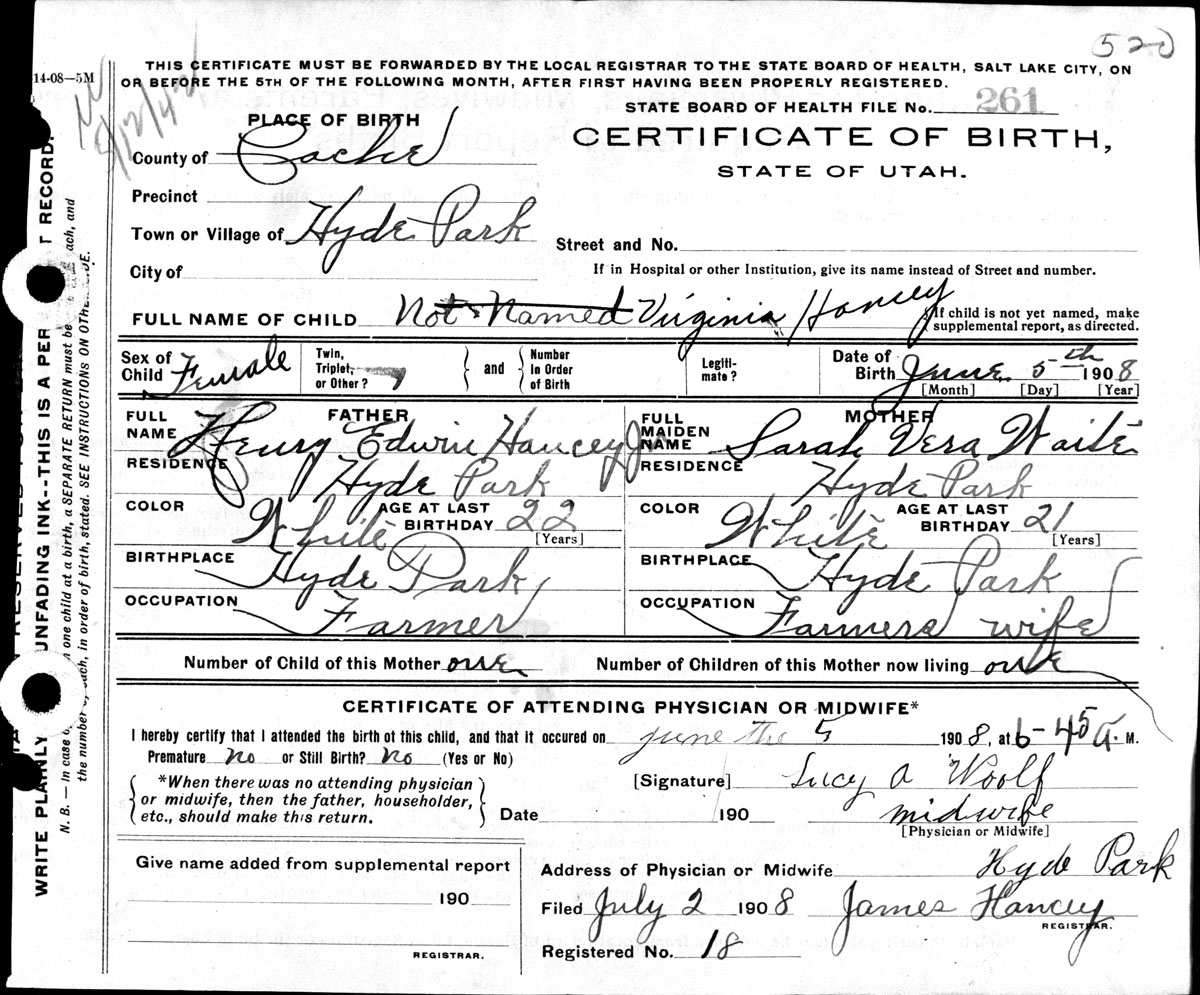 520
14-08—5M
THIS CERTIFICATE MUST BE FORWARDED BY THE LOCAL REGISTRAR TO THE STATE BOARD OF HEALTH, SALT LAKE CITY, ON
OR BEFORE THE 5TH OF THE FOLLOWING MONTH, AFTER FIRST HAVING BEEN PROPERLY REGISTERED.
STATE BOARD OF HEALTH FILE No. 261
PLACE OF BIRTH
CERTIFICATE OF BIRTH,
STATE OF UTAH.
County of Cache
Precinct
Town or Village of Hyde Park
Street and No.
City of
If in Hospital or other Institution, give its name instead of Street and number.
FULL NAME OF CHILD Not Named Virginia Hancey
If child is not yet named, make
supplemental report, as directed.
Sex of Child Female
Twin, Triplet, or Other?
and
Number In Order of Birth
Legiti-mate?
Date of Birth June 5th 1908
[Month] [Day] [Year]
FATHER
FULL NAME Henry Edwin Hancey Jr
RESIDENCE Hyde Park
COLOR White
AGE AT LAST BIRTHDAY 22
[Years]
BIRTHPLACE Hyde Park
OCCUPATION Farmer
MOTHER
FULL MAIDEN NAME Sarah Vera Waite
RESIDENCE Hyde Park
COLOR White
AGE AT LAST BIRTHDAY 21
[Years]
BIRTHPLACE Hyde Park
OCCUPATION Farmers wife
Number of Child of this Mother one
Number of Children of this Mother now living one
CERTIFICATE OF ATTENDING PHYSICIAN OR MIDWIFE*
I hereby certify that I attended the birth of this child, and that it occured on june the 5 1908, at 6-45 a. M.
Premature no or Still Birth? no (Yes or No)
*When there was no attending physician
or midwife, then the father, householder,
etc., should make this return.
[Signature] Lucy A Woolf
Date 190
midwife
[Physician or Midwife]
Give name added from supplemental report
190
REGISTRAR.
Address of Physician or Midwife Hyde Park
Filed July 2 1908 James Hancey
REGISTRAR.
Registered No. 18
WRITE PLAINLY UNFADING INK--THIS IS A PER T RECORD.
N. B.—In case one child at a birth, a SEPARATE RETURN must be each, and
the number each, in order of birth, stated. SEE INSTRUCTIONS ON OTHE DE.